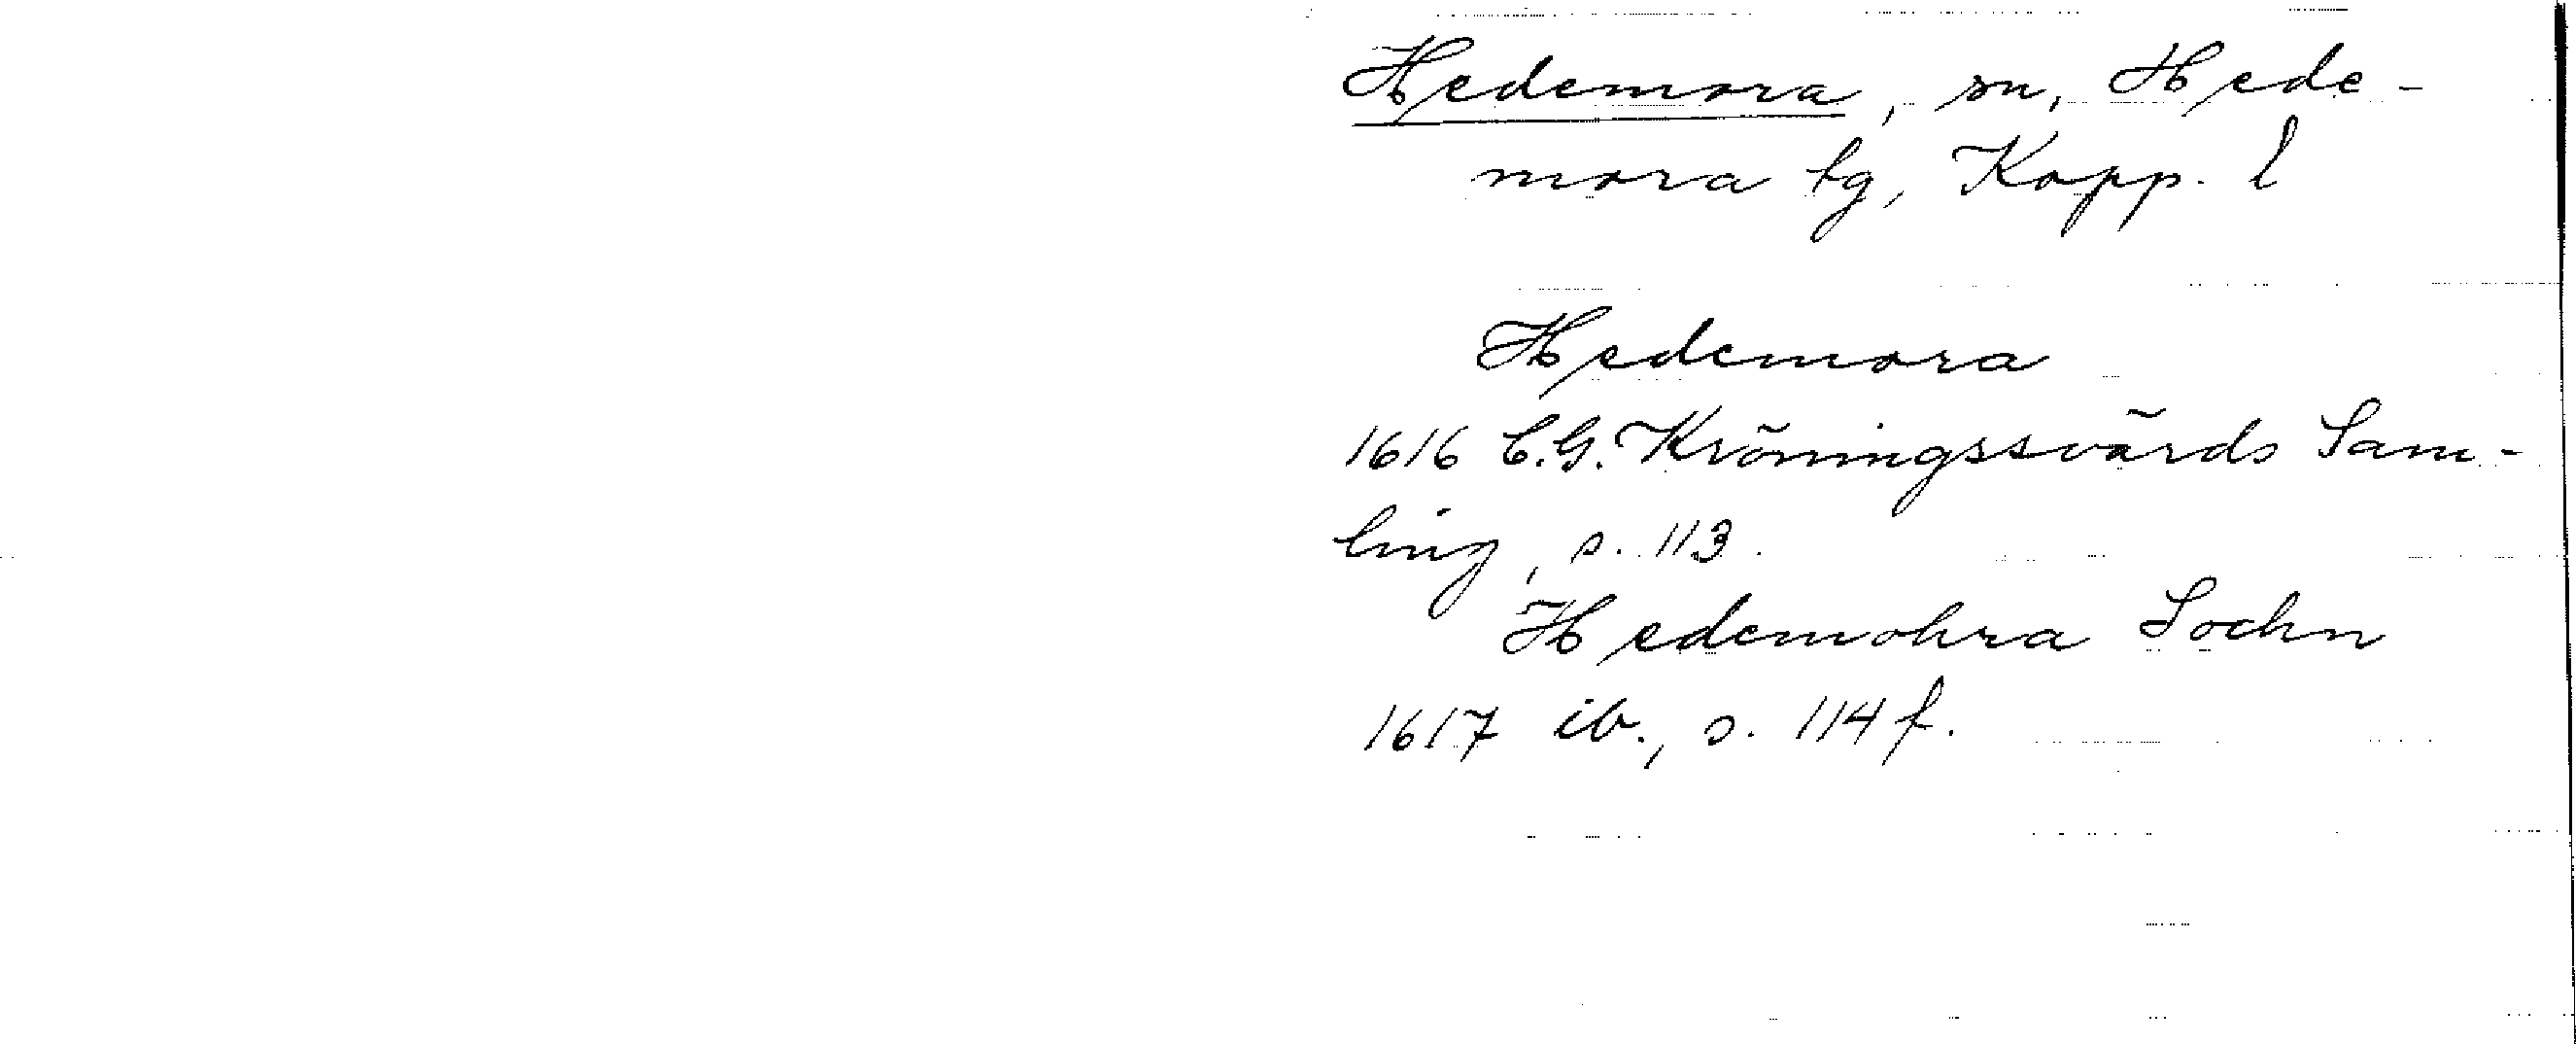 Hedemora, sn, Hede-
mora tg, Kopp. l
Hedemora
1616 C.G. Kröningssvärds Sam-
ling, s. 113.
Hedemohra Sochn
1617 ib., s. 114 f.